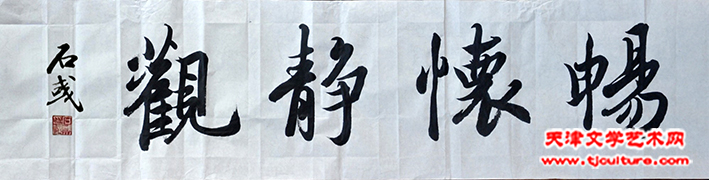 暢懷静觀
石彧
天津文学艺术网
www.tjculture.com